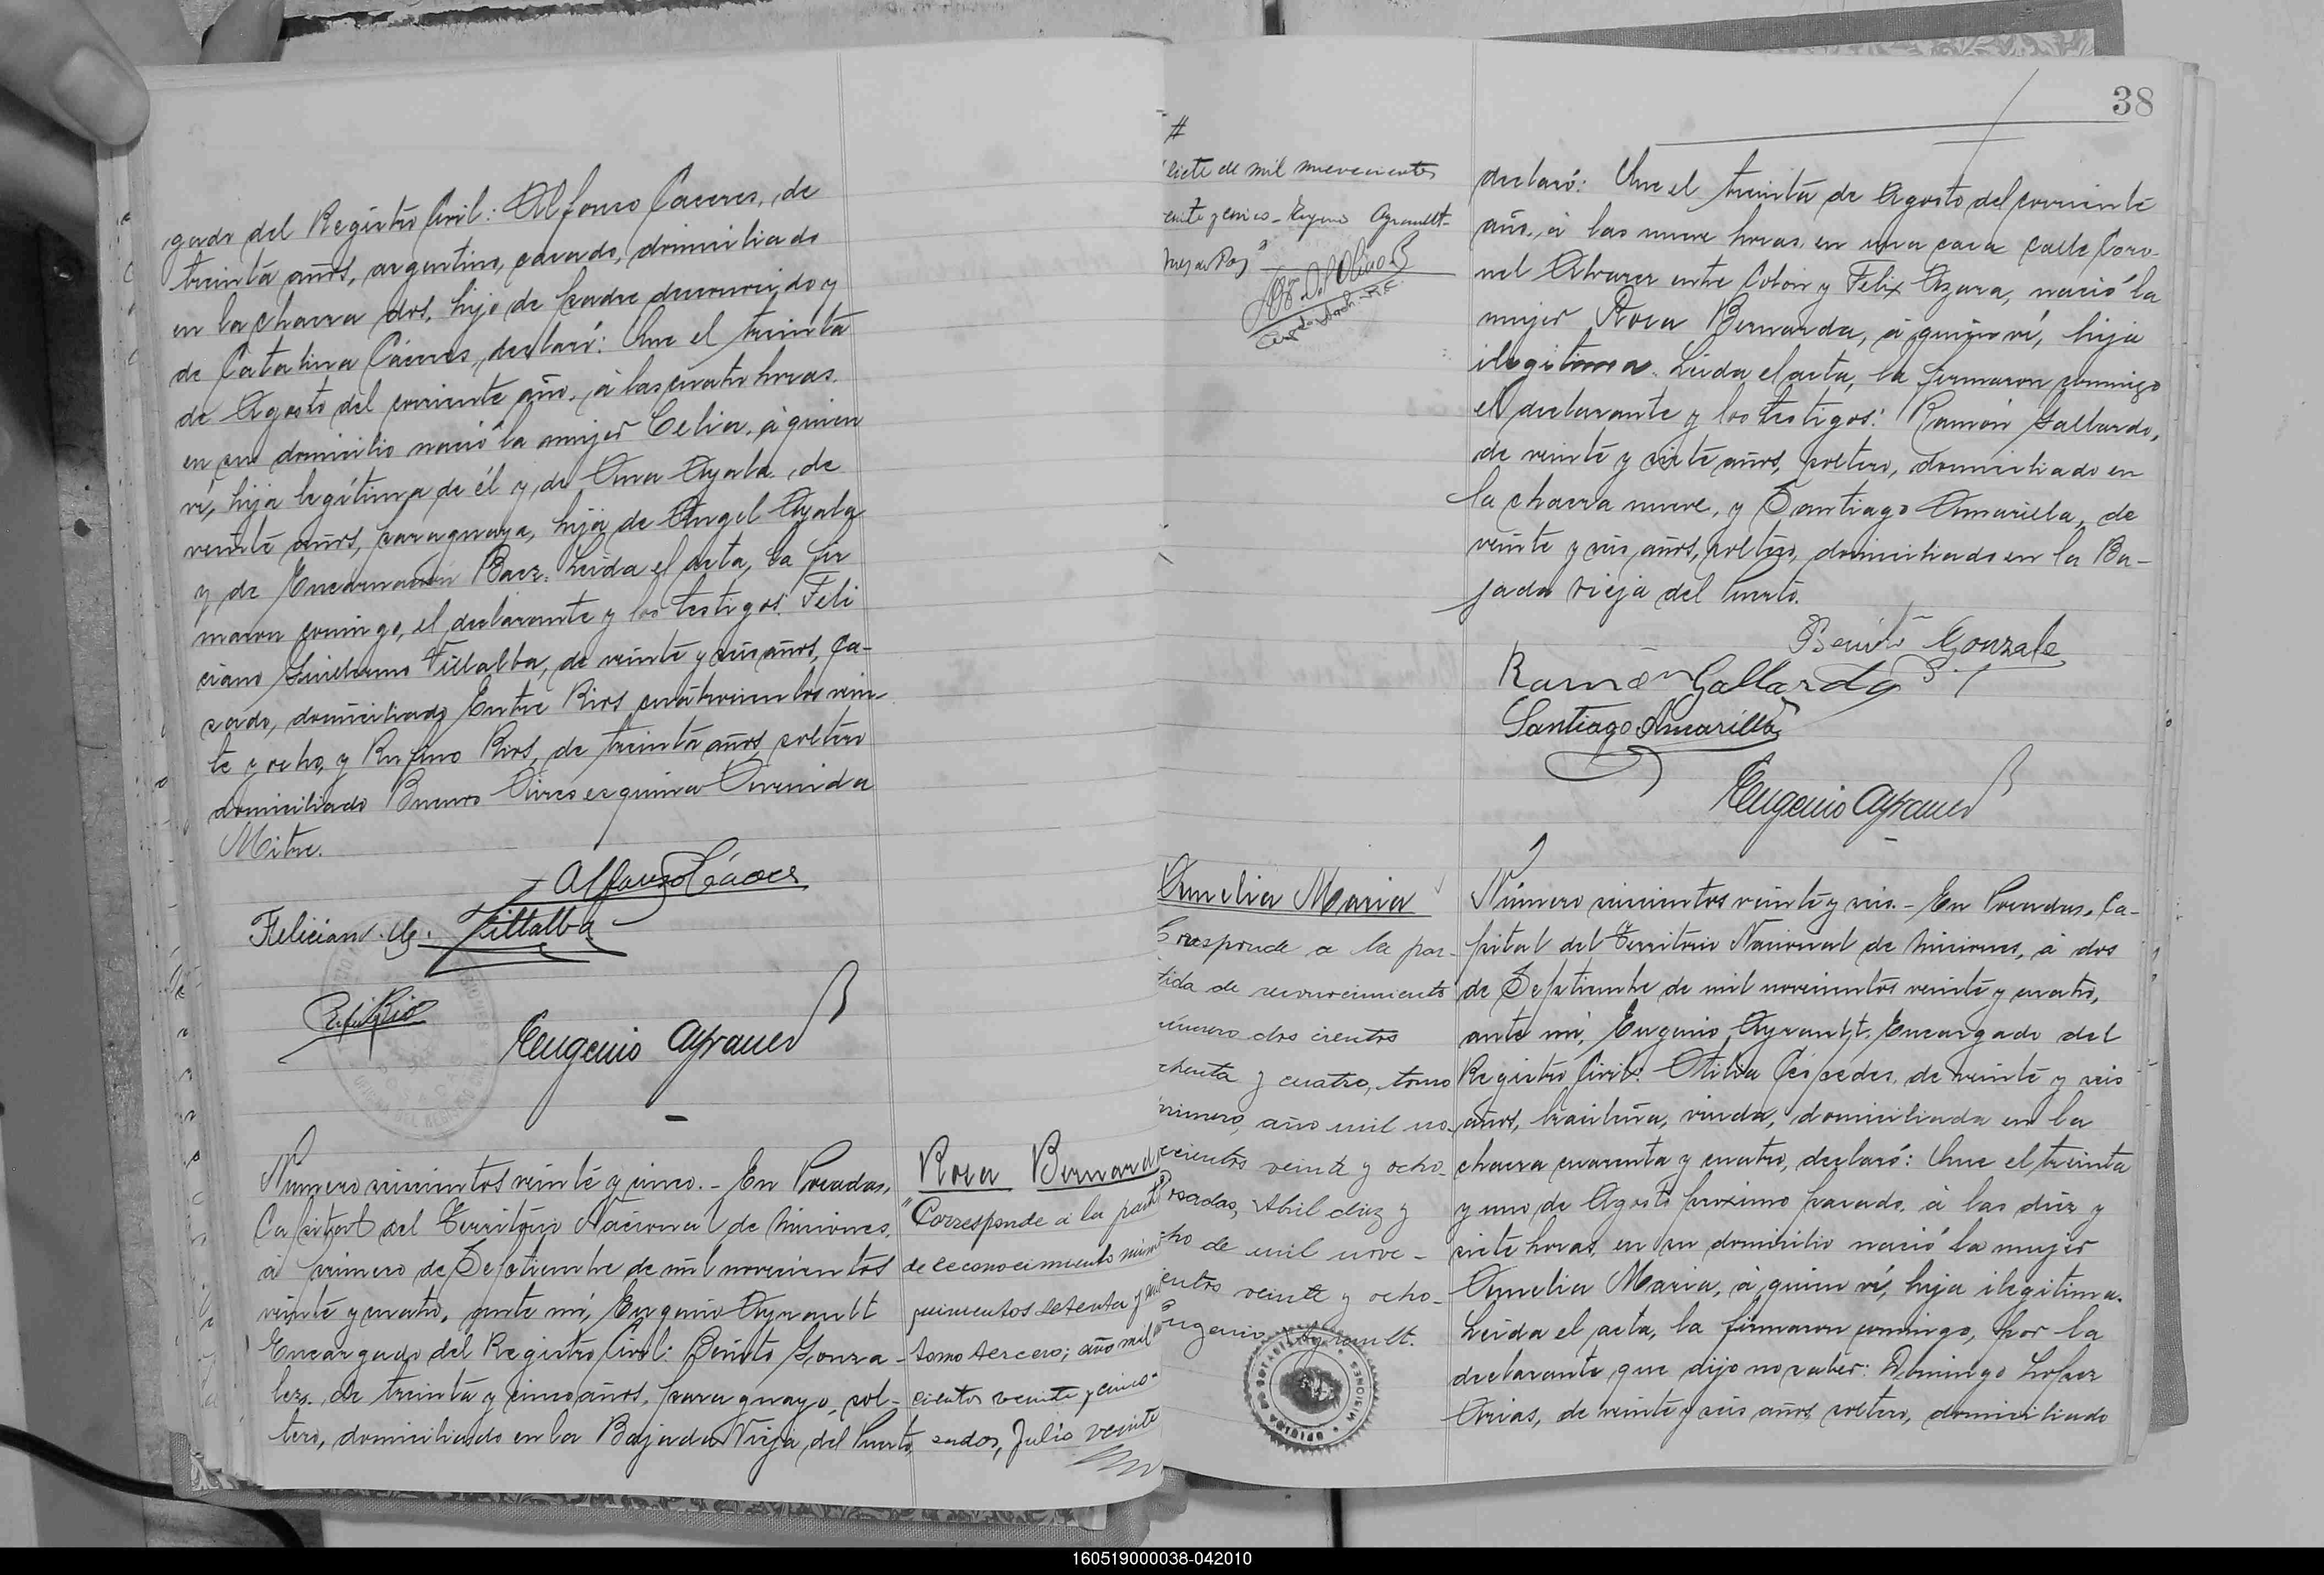 gado del Registro Civil: Alfonso Caceres, de
treinta años, argentino, casado, domiciliado
en la chacra dos, hijo de padre desconocido y
de Catalina Cáceres, declaró: Que el treinta
de Agosto del corriente año, á las cuatro horas.
en su domicilio nació la mujer Celia, á quien
ví, hija legítima de él y de Ana Ayala, de
veinte años, paraguaya, hija de Angel Ayala
y de Encarnación Baez. Leida el acta, la fir
maron conmigo, el declarante y los testigos: Feli
ciano Guillermo Villalba, de veinte y seis años, ca-
sado, domiciliado Entre Rios cuatrocientos vein-
te y ocho, y Rufino Rios, de treinta años, soltero
domiciliado Buenos Aires esquina Avenida
Mitre.
Alfonso Cáceres
Felician. G. Villalba
Rufi Rio
Eugenio Ayrault
Número seiscientos veinte y cinco.- En Posadas,
Capital del Territorio Nacional de Misiones,
á primero de Septiembre de mil novecientos
veinte y cuatro, ante mí, Eugenio Ayrault
Encargado del Registro Civil: Benito Gonza-
lez, de treinta y cinco años, paraguayo, sol-
tero, domiciliado en la Bajada Vieja del Puerto,
Rosa Bernard
"Corresponde á la parti
de reconocimiento núm
quinientos setenta y
tomo tercero; año mil
cientos veinte y cinco.
sadas, Julio veinte
38
#
siete de mil novecientos
veinte y cinco - Eugenio Ayrault-
Juez de Paz"
declaró: Que el treinta de Agosto del corriente
año, á las nueve horas, en una casa calle Coro-
nel Alvarez entre Colón y Felix Azara, nació la
mujer Rosa Bernarda, á quien ví, hija
ilegitima. Leida el acta, la firmaron conmigo
el declarante y los testigos: Ramón Gallardo,
de veinte y siete años, soltero, domiciliado en
la chacra nueve, y Santiago Amarilla, de
veinte y seis años, soltero, domiciliado en la Ba-
jada Vieja del Puerto.
Benito Gonzale
Ramón Gallardo
Santiago Amarilla
Eugenio Ayrault
Amelia Maria
Corresponde a la par-
tida de reconocimiento
número dos cientos
ochenta y cuatro, tomo
primero, año mil no-
vecientos veinte y ocho-
Posadas, Abril diez y
ocho de mil nove-
cientos veinte y ocho-
Eugenio Ayrault.
Número seiscientos veinte y seis.- En Posadas, Ca-
pital del Territorio Nacional de Misiones, á dos
de Septiembre de mil novecientos veinte y cuatro,
ante mí, Eugenio Ayrault, Encargado del
Registro Civil: Otilia Céspedes, de veinte y seis
años, brasileña, viuda, domiciliada en la
chacra cuarenta y cuatro, declaró: Que el treinta
y uno de Agosto próximo pasado, á las diez y
siete horas, en su domicilio nació la mujer
Amelia Maria, á quien ví, hija ilegitima.
Leida el acta, la firmaron conmigo, por la
declarante, que dijo no saber: Domingo Lopez
Arias, de veinte y seis años soltero, domiciliado
160519000038-042010